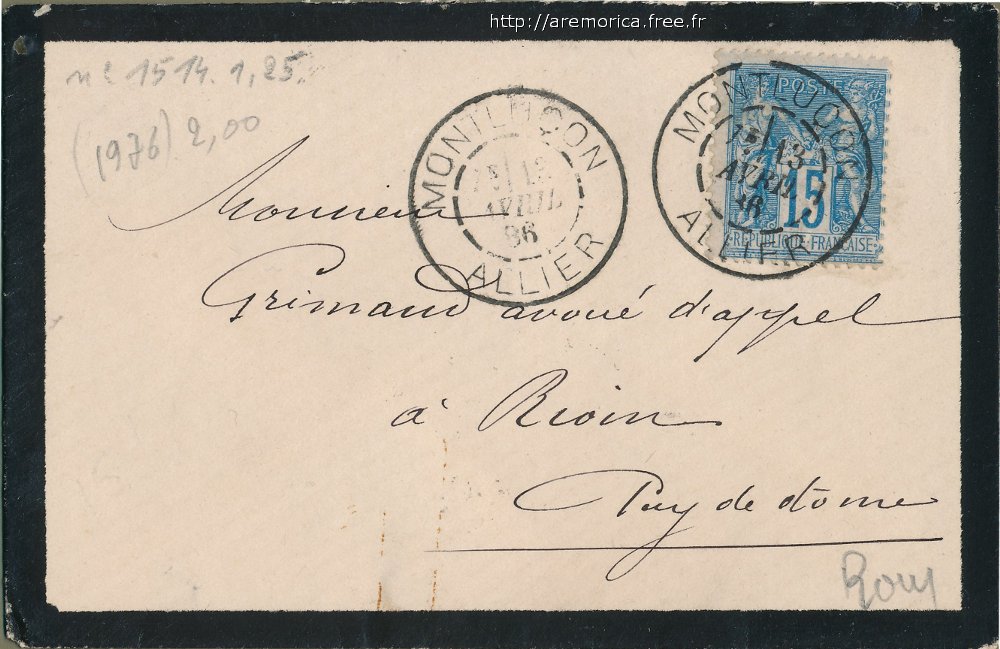 http://aremorica.free.fr
n° 1514. 1,25.
(1976) 2,00
MONTLUÇON
13
AVRIL
86
ALLIER
MONTLUÇON
13
AVRIL
86
ALLIER
POSTE
15
REPUBLIQUE FRANÇAISE
Monsieur
Grimaud avoué d'appel
à Riom
Puy de dome